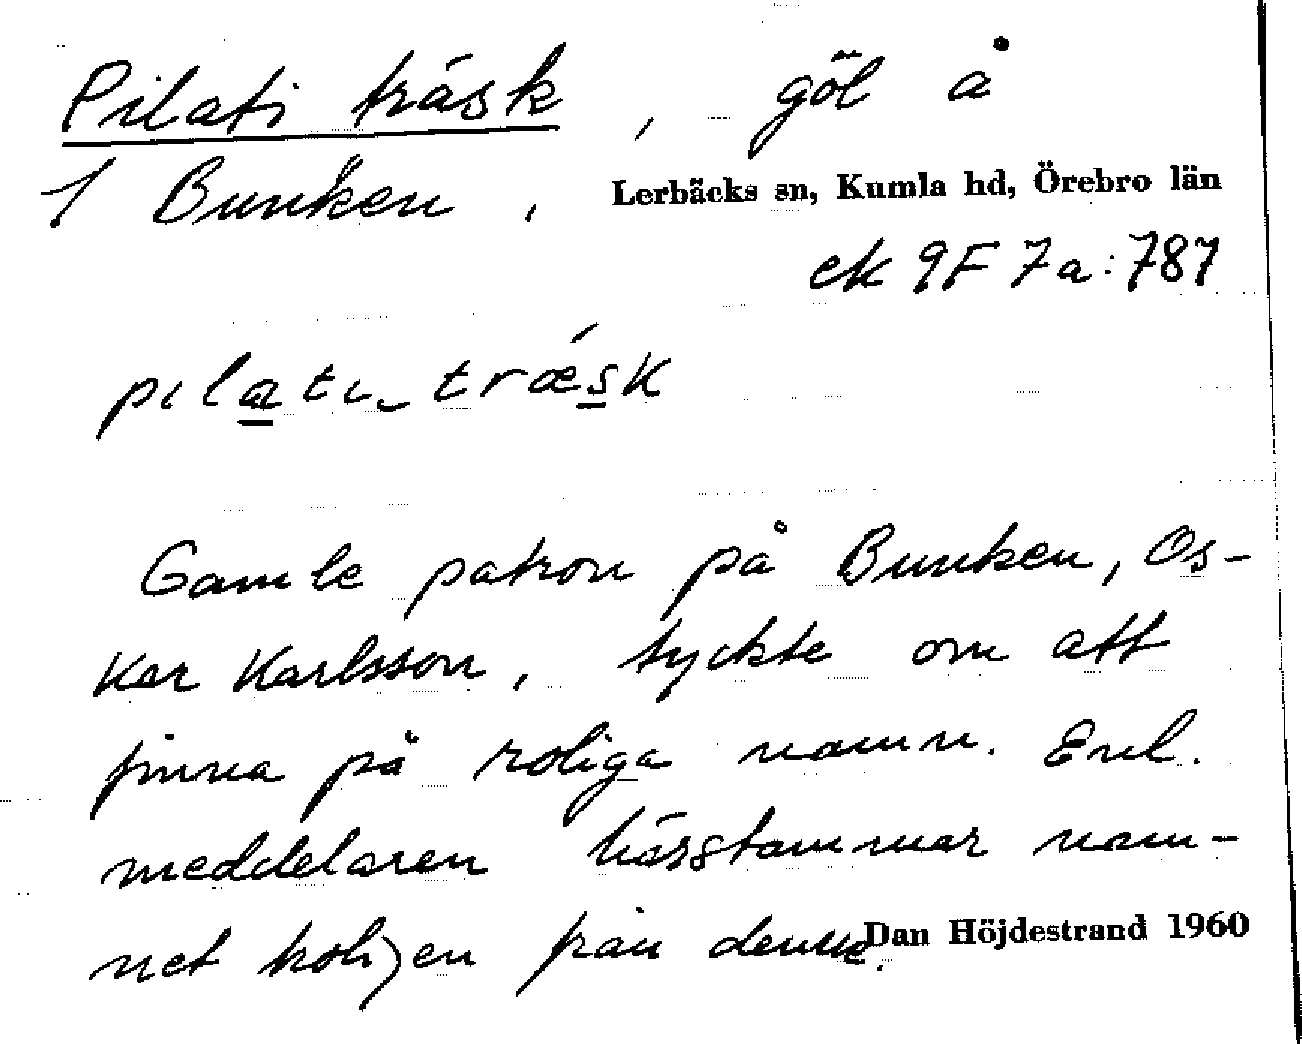 Pilati träsk, göl å
1 Bunken, Lerbäcks sn, Kumla hd, Örebro län
ek 9F 7a:787
pılatı‿trǽsk
Gamle patron på Bunken, Os-
kar Karlsson, tyckte om att
finna på roliga namn. Enl.
meddelaren härstammar nam-
net troligen från denne.
Dan Höjdestrand 1960